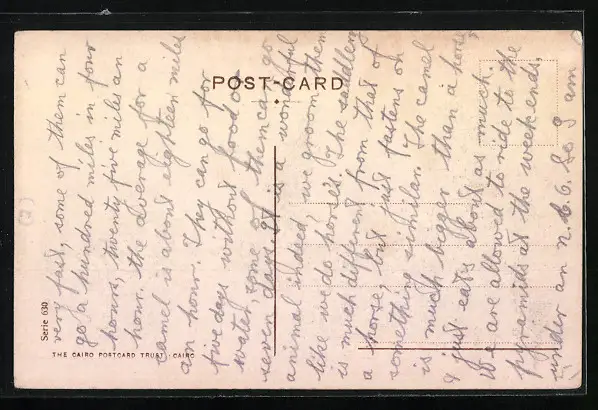 POST-CARD
very fast, some of them can
go a hundred miles in four
hours, twenty five miles an
hour. the average for a
camel is about eighteen miles
an hour. They can go for
five days without food or
water, some of them can go
seven days. It is a wonderful
animal indeed, we groom them
like we do horses. The saddlery
is much different from that of
a horse, but just fastens on
something similar. The camel
is much bigger than a horse
& just eats about as much.
We are allowed to ride to the
pyramids at the weekends,
under an N.C.O. So I am
Serie 630
THE CAIRO POSTCARD TRUST · CAIRO